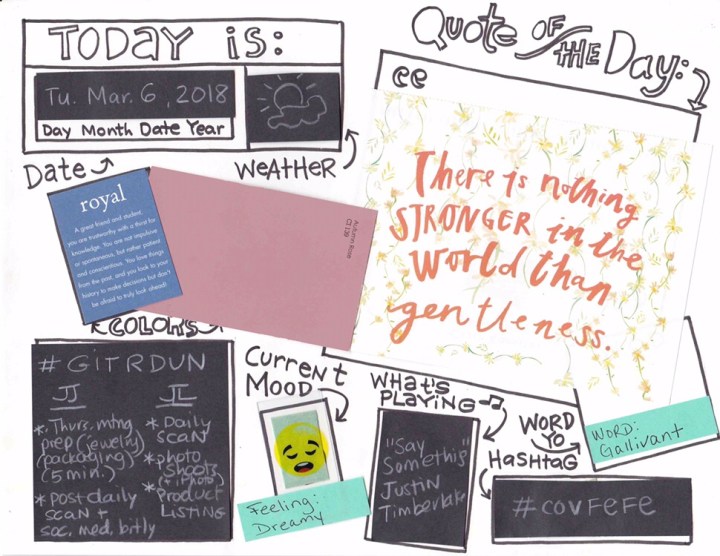 TODAY is:
Tu. Mar. 6, 2018
Day Month Date Year
Date
WEATHER
Quote OF THE Day:
There is nothing
STRONGER in the
world than
gentleness.
royal
A great friend and student,
you are trustworthy with a thirst for
knowledge. You are not impulsive
or spontaneous, but rather patient
and conscientious. You love things
from the past, and you look to your
history to make decisions but don't
be afraid to truly look ahead!
Autumn Rose
COLORS
#GITRDUN
JJ
* Thurs. mtng
prep (jewelry)
(packaging)
(5 min.)
* Post daily
scan +
soc. med. bitly
JL
* Daily
scan
* photo
shoots
(+ iPhoto)
* Product
LISTING
Current
MOOD
Feeling:
Dreamy
WHAT'S
PLAYING
"Say
Somethin"
Justin
Timberlake
WORD
YO
HASHTAG
WORD:
Gallivant
#covfefe